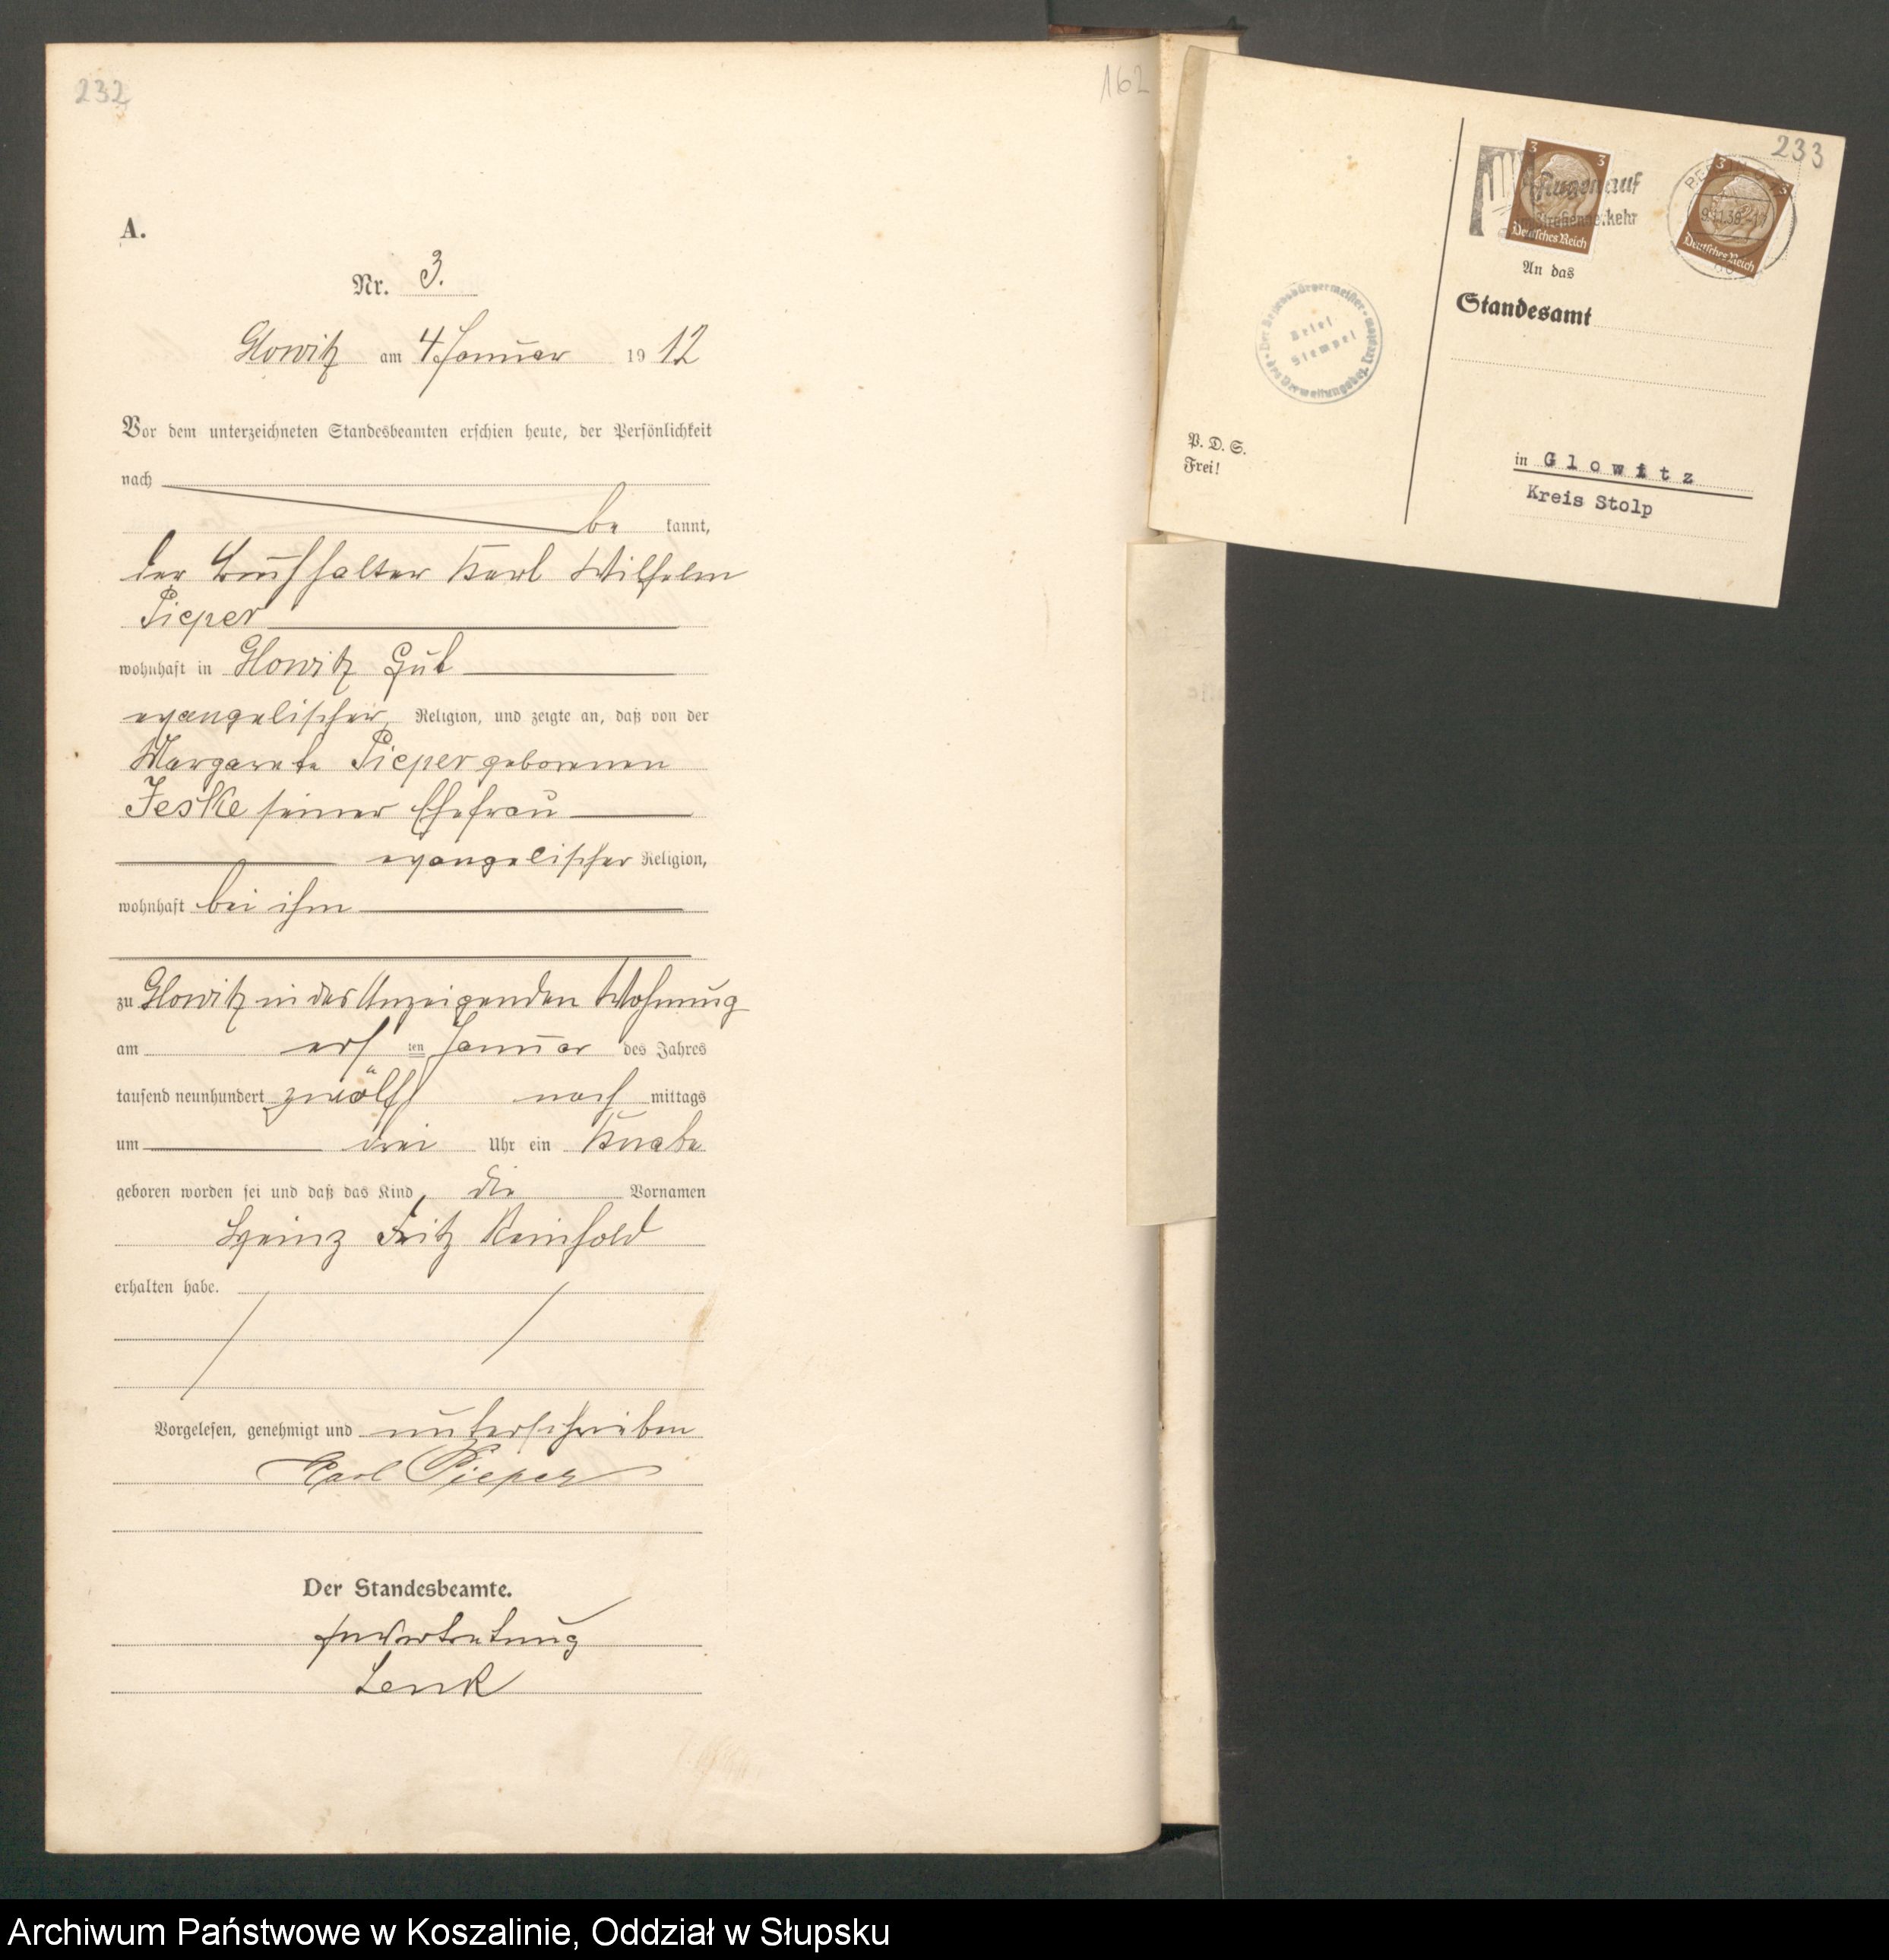 232
162
A.
Nr. 3.
Glowitz am 4 Januar 1912
Vor dem unterzeichneten Standesbeamten erschien heute, der Persönlichkeit
nach
be kannt,
der Buchhalter Karl Wilhelm
Pieper
wohnhaft in Glowitz Gut
evangelischer Religion, und zeigte an, daß von der
Margarete Pieper geborenen
Jeske seiner Ehefrau
evangelischer Religion,
wohnhaft bei ihm
zu Glowitz in des Anzeigenden Wohnung
am ersten Januar des Jahres
tausend neunhundert zwölf nachmittags
um drei Uhr ein Knabe
geboren worden sei und daß das Kind die Vornamen
Heinz Fritz Reinhold
erhalten habe.
Vorgelesen, genehmigt und unterschrieben
Karl Pieper
Der Standesbeamte.
In Vertretung
Lenk
233
3 3
Deutsches Reich
3 3
Deutsches Reich
Augen auf
im Straßenverkehr
An das
Standesamt
Brief
Stempel
P. D. S.
Frei!
in Glowitz
Kreis Stolp
Archiwum Państwowe w Koszalinie, Oddział w Słupsku